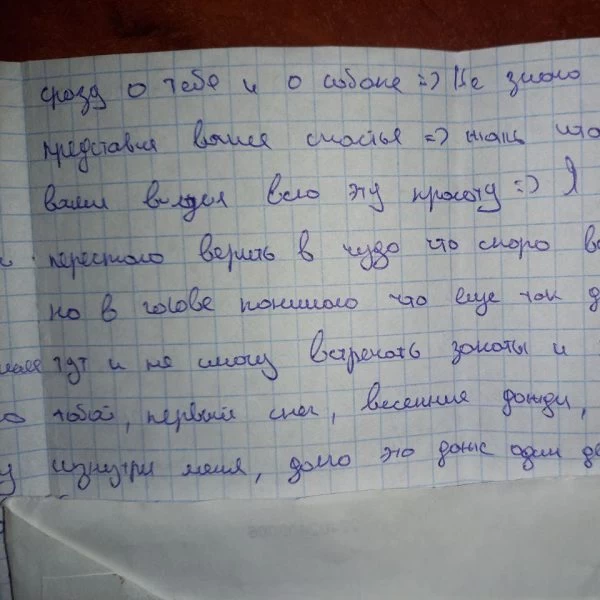 сразу о тебе и о собаке =) Не знаю
представил ваши счастья =) жаль что
вами видел всю эту красоту =) Я
и. перестаю верить в чудо что скоро
но в голове понимаю что еще так д
тут и не смогу встречать закаты и
ю тобой, первый снег, весенние дожди,
у изнутри меня, долго это даже один де